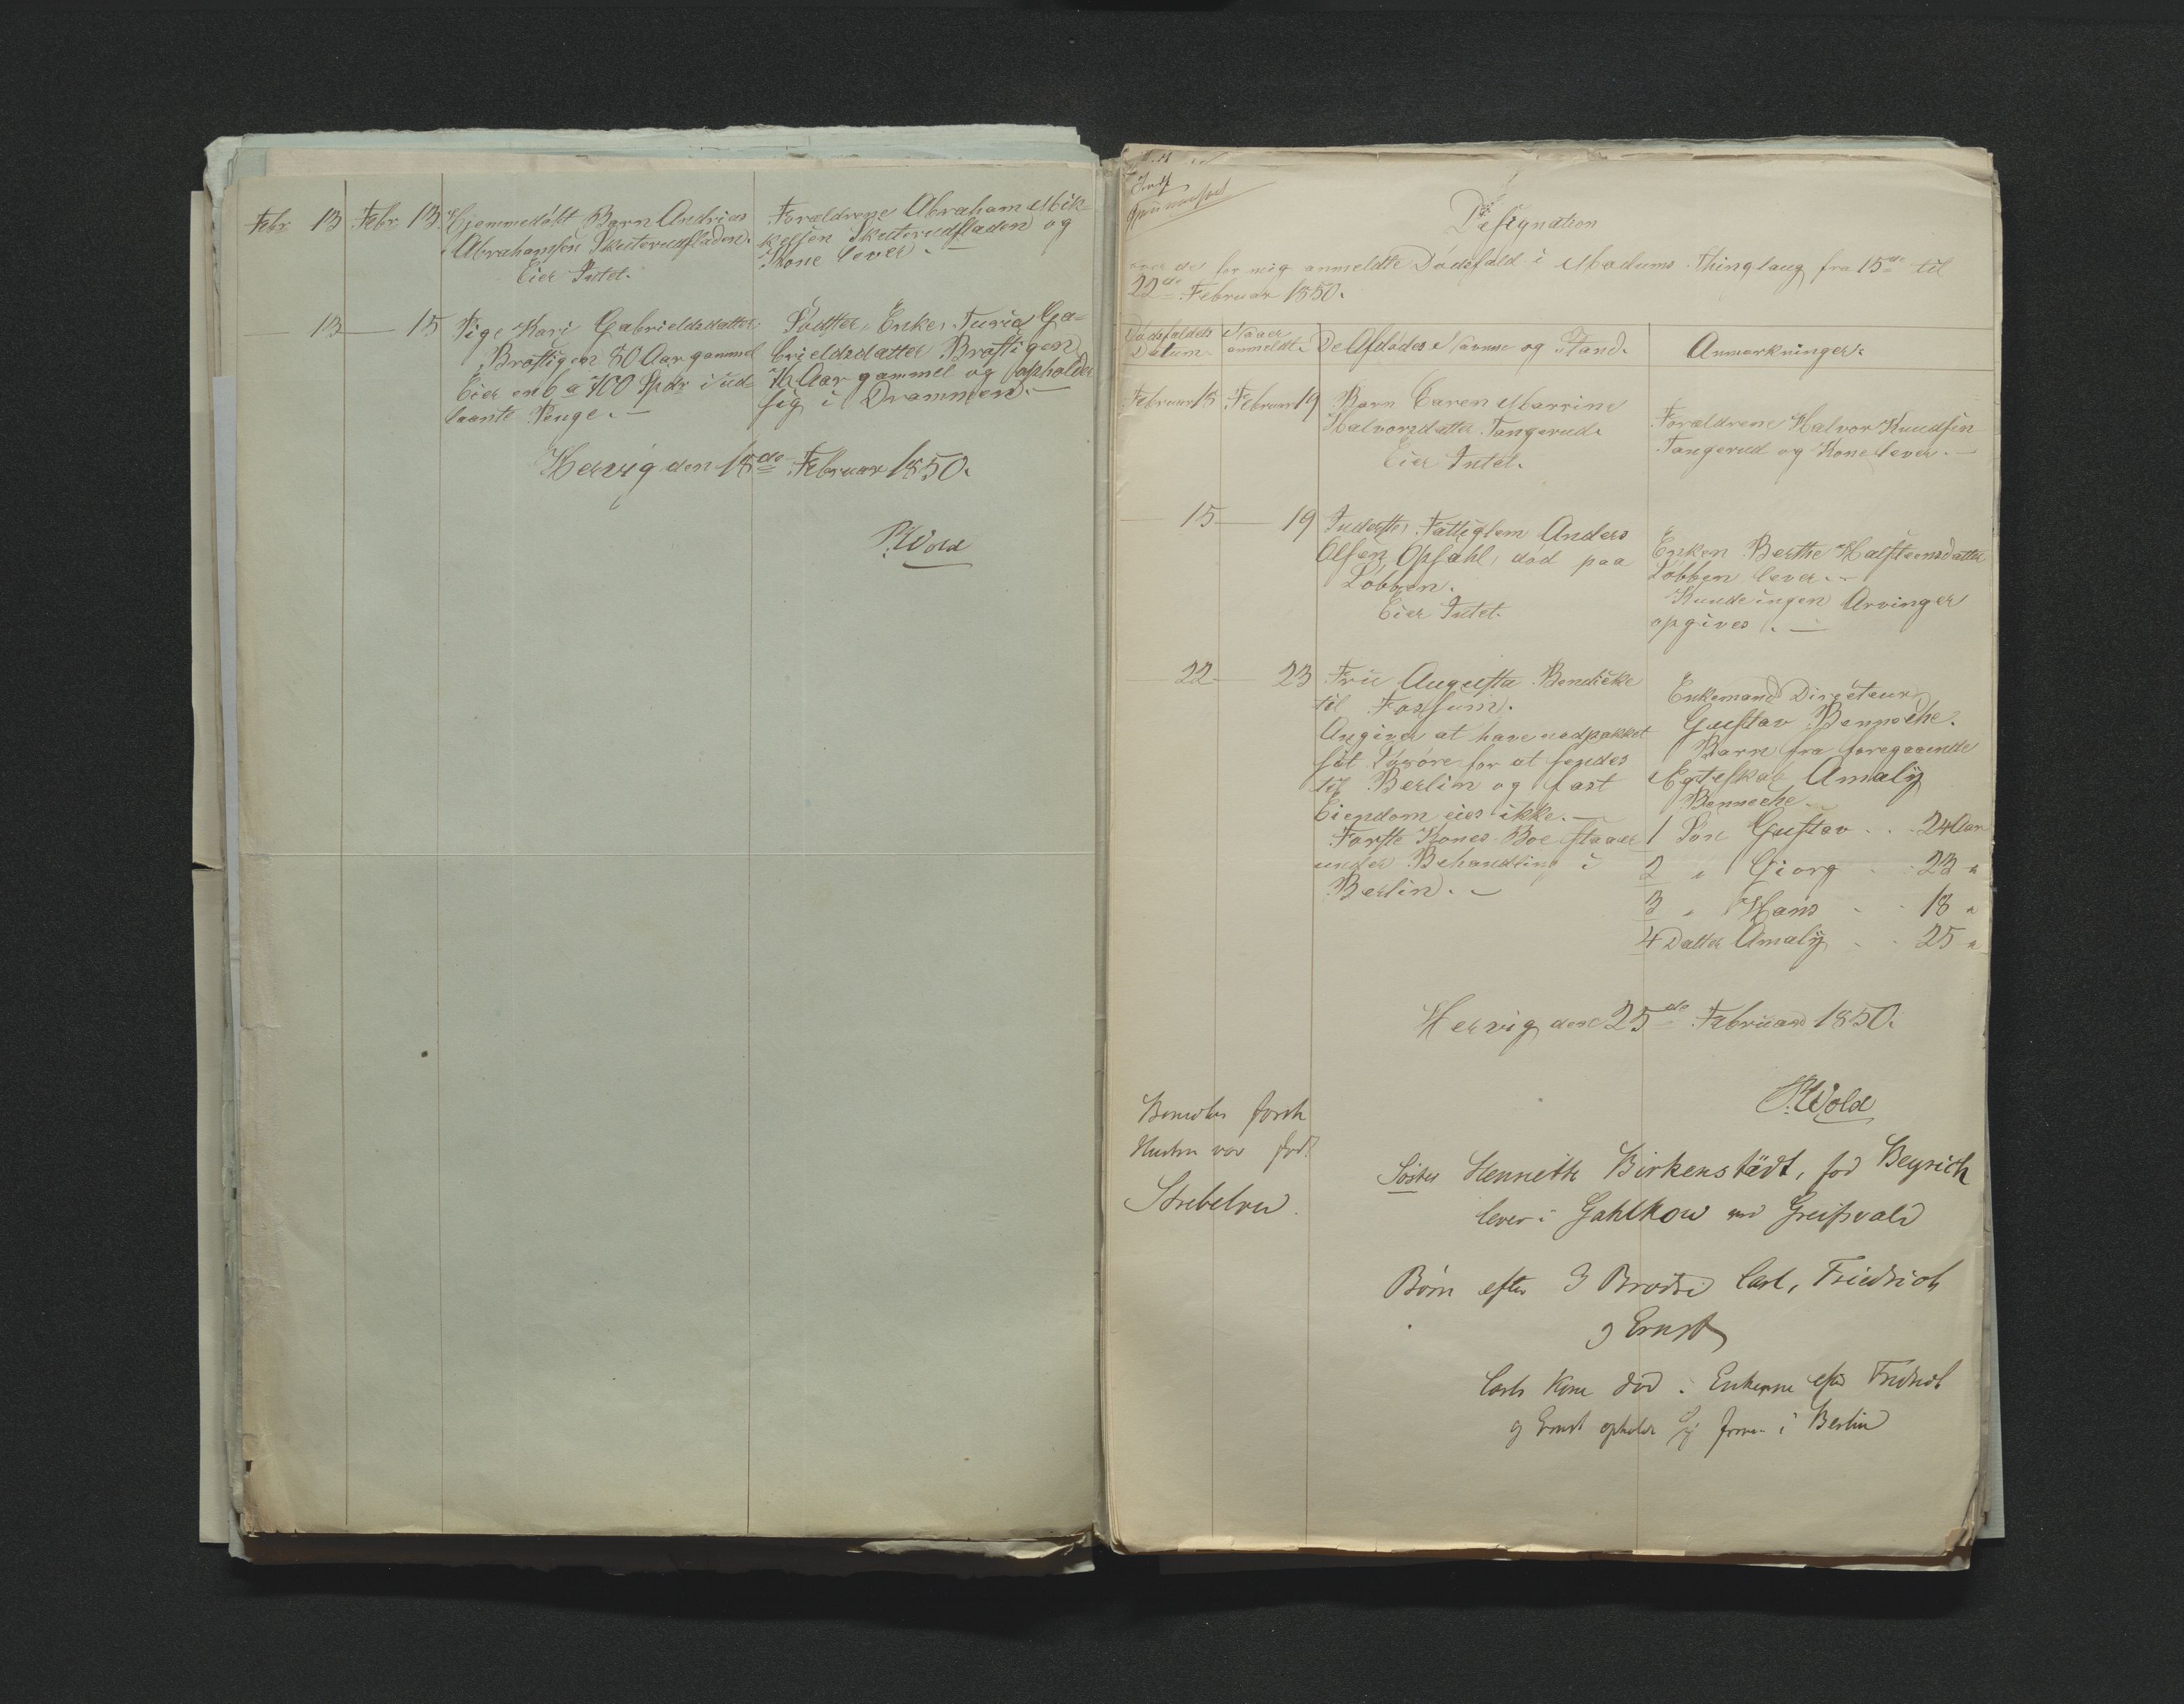 Febr 13 Febr 13. Hjemmedöbt Barn Andrias
Abrahamsen Skuterudfladen.
Eier Intet.
Forældrene Abraham Mik-
kelsen Skuterudfladen og
Kone lever. —
— 13 — 15 Pige Kari Gabrielsdatter
Braatigen 80 Aar gammel
Eier en 6 a 700 Spdr i ud
laante Penge. —
Södster, Enke, Turid Ga-
brieldsdatter Braatigen
Aar gammel og opholder
sig i Drammen. —
Hervig den 18de Februar 1850.
PWold
Designation
over de for mig anmeldte Dødsfald i Modums Thinglaug fra 15de til
22de Februar 1850.
Dødsfaldets
Datum.
Naar
anmeldt.
De Afdødes Navne og Stand.
Anmærkninger.
Februar 15 Februar 19 Barn Caren Marrine
Halvorsdatter Tangerud.
Eier Intet.
Forældrene Halvor Knudsen
Tangerud og Kone lever. —
— 15 — 19 Inderste, Fattiglem Anders
Olsen Opsahl, död paa
Löbben.
Eier Intet.
Enken Berthe Halsteensdatter
Löbben lever. —
Kunde ingen Arvinger
opgives. —
— 22 — 23 Frue Augusta Bendicke
til Fossum.
Angives at have nedpakket
sit Lösöre for at sendes
til Berlin og fast
Eiendom eies ikke. —
Første Kones Boe staaer
under Behandling i
Berlin. —
Enkemand Directeur
Gustav Benneche.
Barn fra foregaaende
Egteskab Amalÿ
Benneche.
1 Sön Gustav . . 24 Aar
2 " Giorg . . 23 "
3 " Hans . . 18 "
4 Datter Amalÿ . . 25 "
Hervig den 25de Februar 1850.
PWold
første
Hustru var fød
Søster Henriette Birkenstädt, fød Beyrich
lever i Gahlkow ved Greifsvald
Børn efter 3 Brødre Carl, Friedrich
og Ernst
Carls Kone død. Enkerne efter Fridrich
og Ernst opholde sig i Berlin